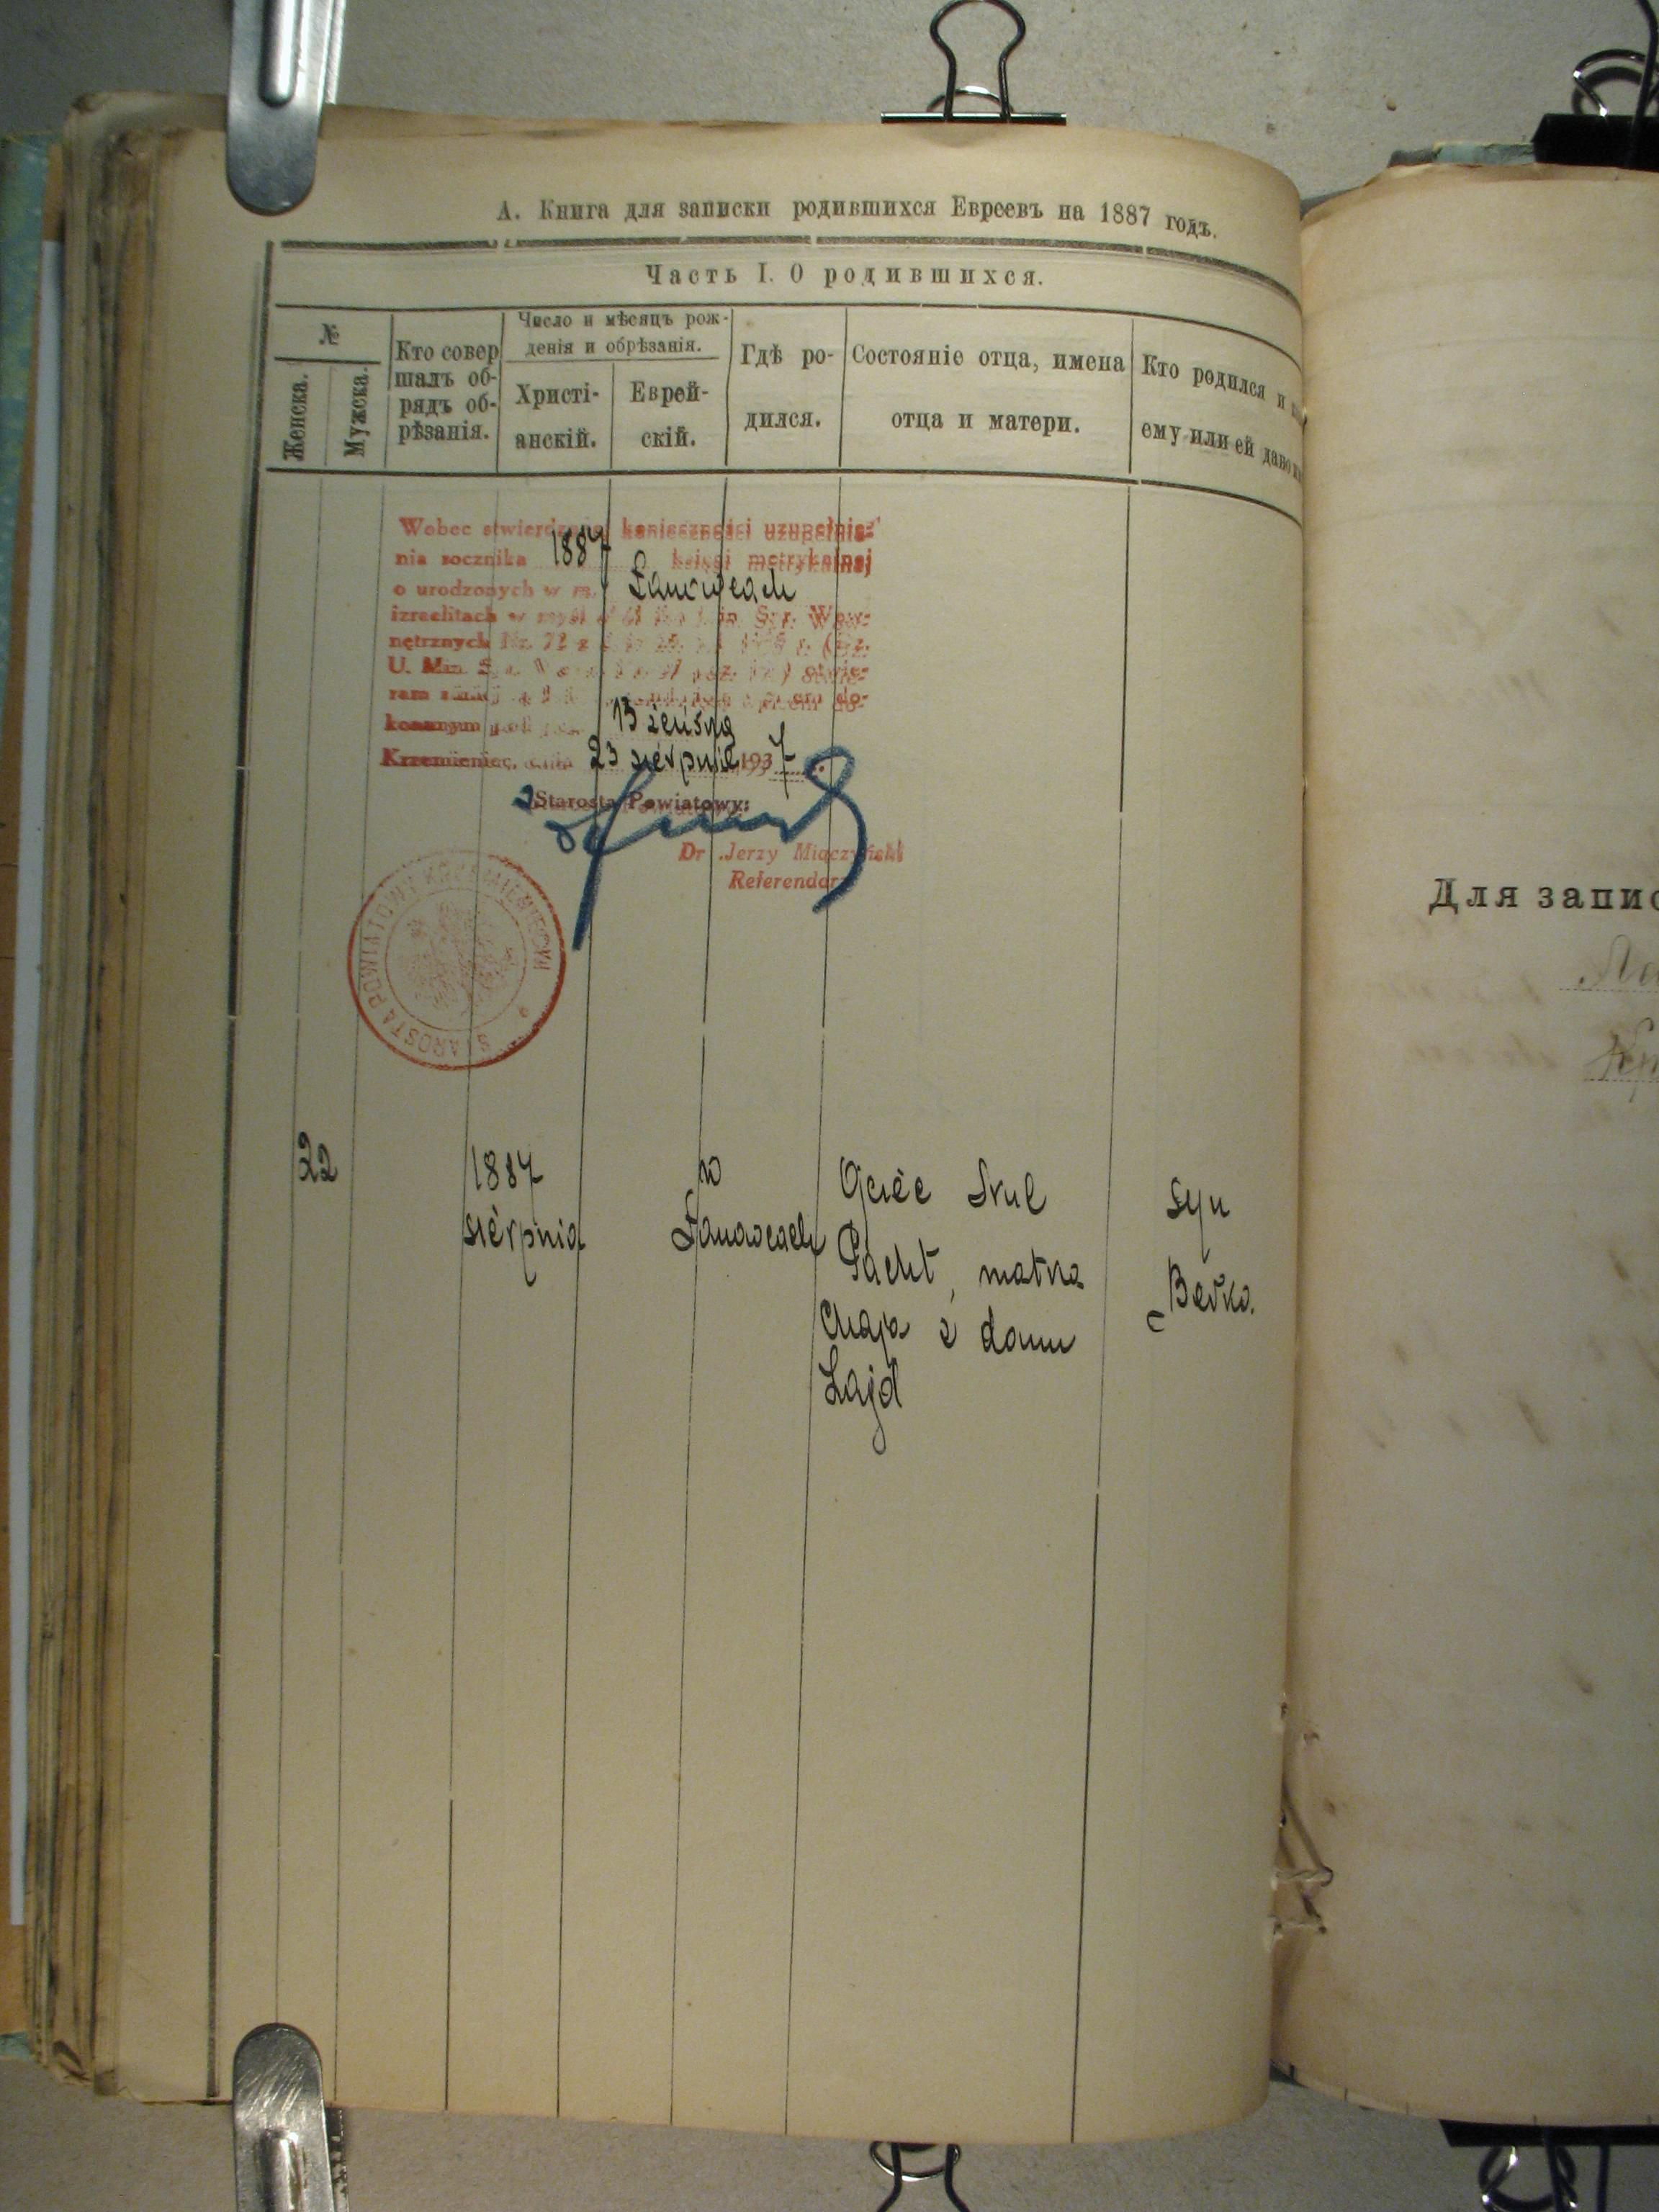 А. Книга для записки родившихся Евреевъ на 1887 годъ.
Часть I. О родившихся.
№
Женска.
Мужска.
Кто совер
шалъ об-
рядъ об-
рѣзанія.
Число и мѣсяцъ рож-
денія и обрѣзанія.
Христі-
анскій.
Еврей-
скій.
Гдѣ ро-
дился.
Состояніе отца, имена
отца и матери.
Кто родился и
ему или ей дано
Wobec stwierdzonej konieczności uzupełnie-
nia rocznika 1887 księgi metrykalnej
o urodzonych w m. Łanowcach
izraelitach w myśl
nętrznych
U. Min.
ram
konanym
Krzemieniec, dnia 23 sierpnia 1937
Starosta Powiatowy:
Dr Jerzy Miączyński
Referendarz
STAROSTA POWIATOWY KRZEMIENIECKI
22
1887
sierpnia
w
Łanowcach
Ojciec Srul
Pacht, matka
Chaja z domu
Lajd
syn
Berko.
Для запис